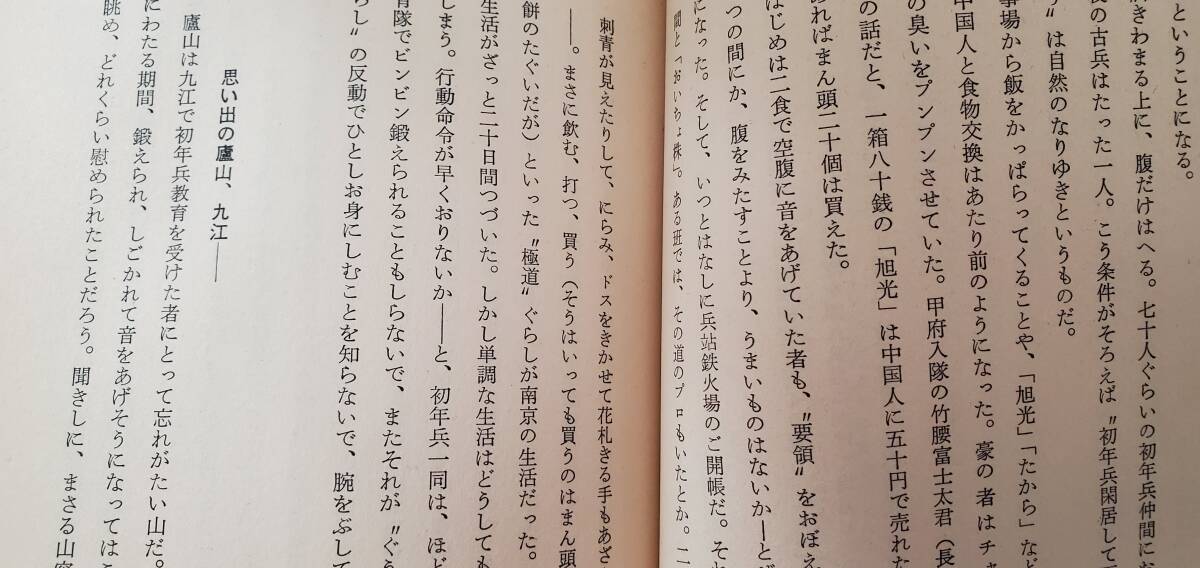 ということになる。
きわまる上に、腹だけはへる。七十人ぐらいの初年兵仲間にお
の古兵はたった一人。こう条件がそろえば〝初年兵閑居して
〟は自然のなりゆきというものだ。
事場から飯をかっぱらってくることや、「旭光」「たから」など
中国人と食物交換はあたり前のようになった。豪の者はチャ
の臭いをプンプンさせていた。甲府入隊の竹腰富士太君（長
の話だと、一箱八十銭の「旭光」は中国人に五十円で売れた
あればまん頭二十個は買えた。
はじめは二食で空腹に音をあげていた者も、〝要領〟をおぼえ
つの間にか、腹をみたすことより、うまいものはないか―とど
になった。そして、いつとはなしに兵站鉄火場のご開帳だ。それ
間と「おいちょ株」。ある班では、その道のプロもいたとか。二
刺青が見えたりして、にらみ、ドスをきかせて花札きる手もあざ
――。まさに飲む、打つ、買う（そうはいっても買うのはまん頭
餅のたぐいだが）といった〝極道〟ぐらしが南京の生活だった。
生活がざっと二十日間つづいた。しかし単調な生活はどうしても
しまう。行動命令が早くおりないか――と、初年兵一同は、ほど
育隊でビンビン鍛えられることもしらないで、またそれが〝ぐう
らし〟の反動でひとしお身にしむことを知らないで、腕をぶして
思い出の廬山、九江――
廬山は九江で初年兵教育を受けた者にとって忘れがたい山だ。
にわたる期間、鍛えられ、しごかれて音をあげそうになってはこ
眺め、どれくらい慰められたことだろう。聞きしに、まさる山容